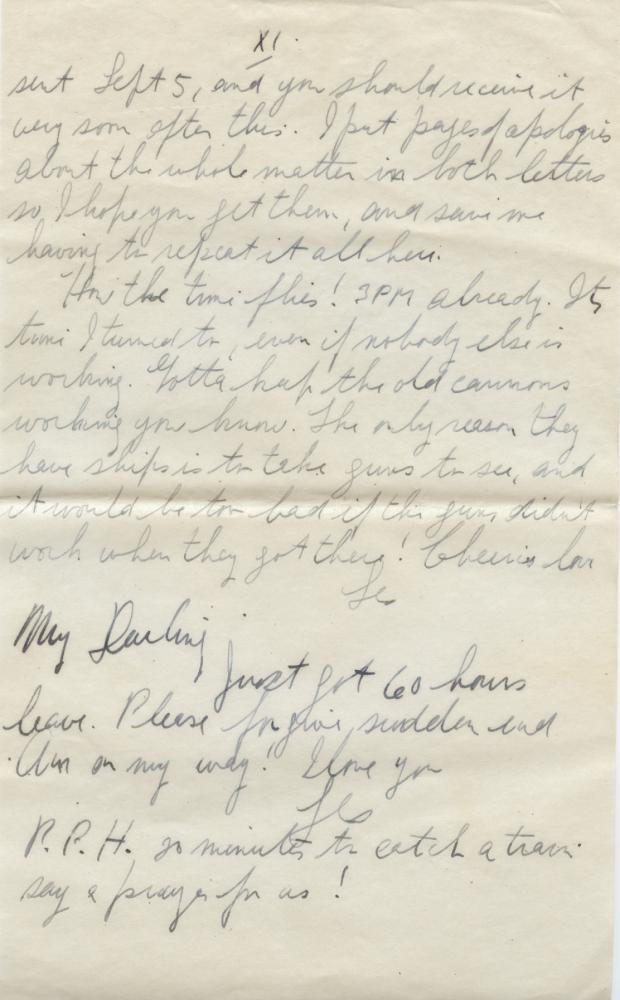 XI.
sent Sept 5, and you should receive it
very soon after this. I put pages of apologies
about the whole matter in both letters
so I hope you get them, and save me
having to repeat it all here.
How the time flies! 3PM already. Its
time I turned to, even if nobody else is
working. Gotta keep the old cannons
working you know. The only reason they
have ships is to take guns to sea, and
it would be too bad if the guns didn't
work when they got there! Cheerio love
Les
My Darling
Just got 60 hours
leave. Please forgive sudden end
Am on my way. I love you
Les
P.P.H. 20 minutes to catch a train
say a prayer for us!